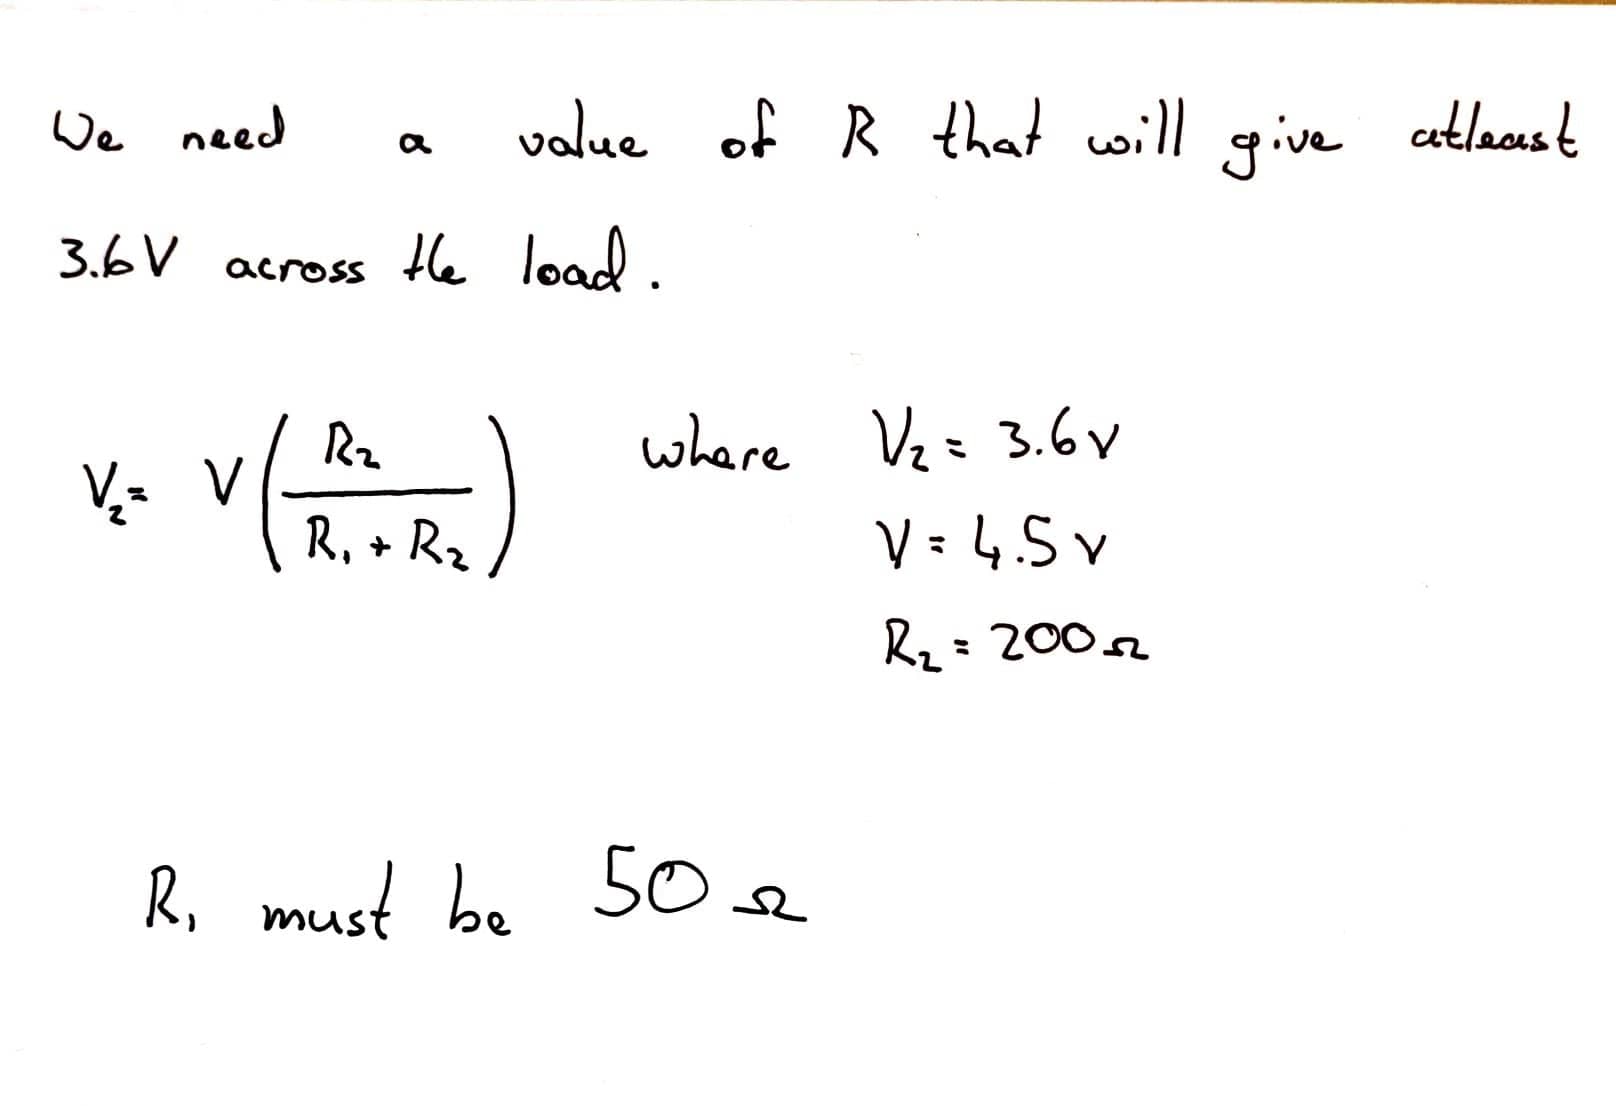 We need a value of R that will give atleast
3.6V across the load.
V₂ = V(R₂ / (R₁ + R₂)) where V₂ = 3.6v
V = 4.5v
R₂ = 200Ω
R₁ must be 50Ω